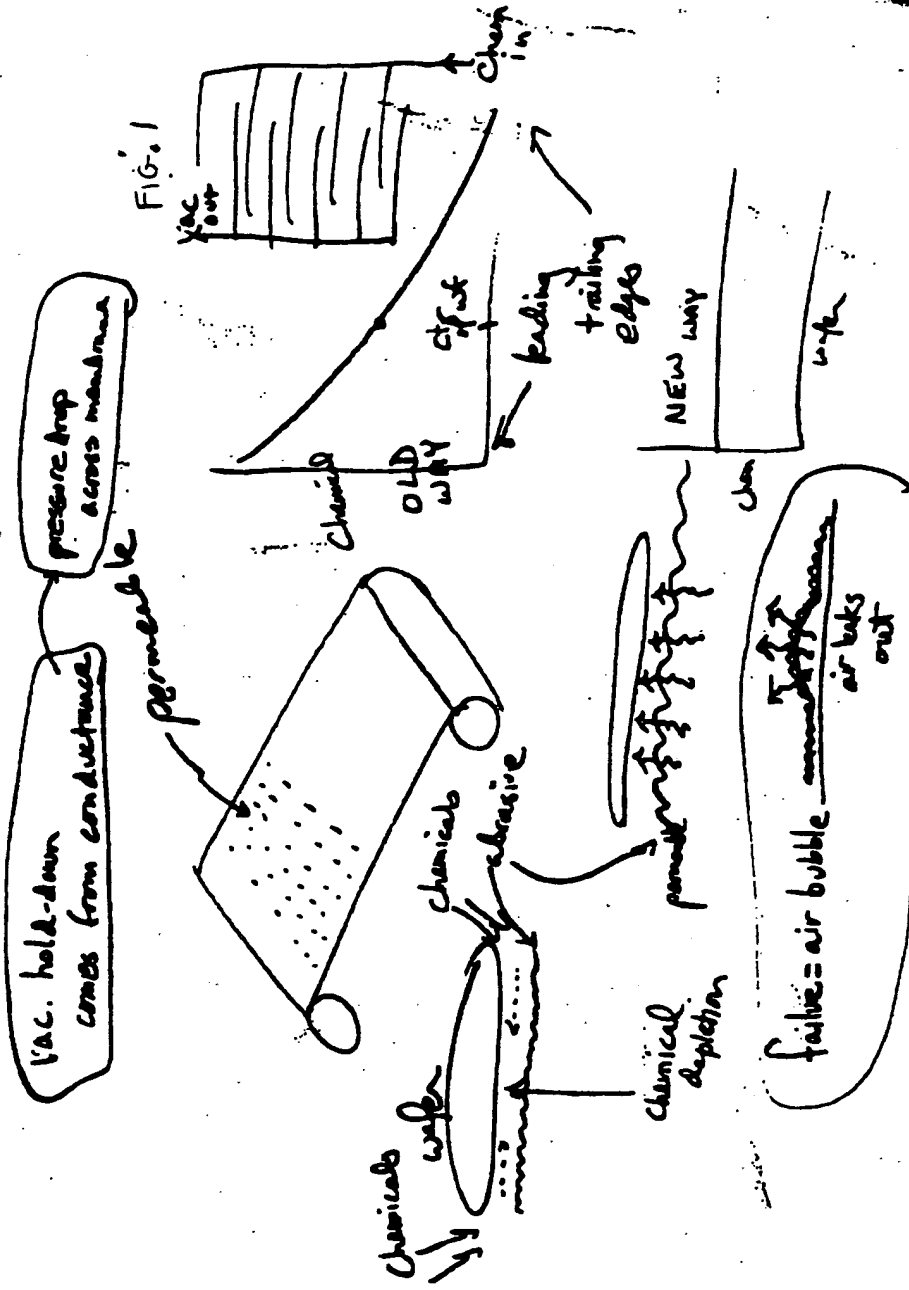 Vac. hold-down
comes from conductance
pressure drop
across membrane
permeable
FIG. 1
Vac
out
Chem
in
Chemical
OLD
WAY
ctr of wf
leading
trailing
edges
Chemicals
wafer
chemicals
abrasive
Chemical
depletion
permeable
NEW WAY
chem
wafer
failure = air bubble
air leaks
out